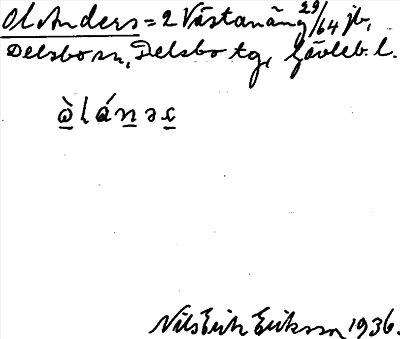 Ol Anders = 2 Västanäng 29/64 jb,
Delsbo sn, Delsbo tg, Gävleb. l.
ὰ̱lán̠əs̠
Nils Erik Eriksson 1936.